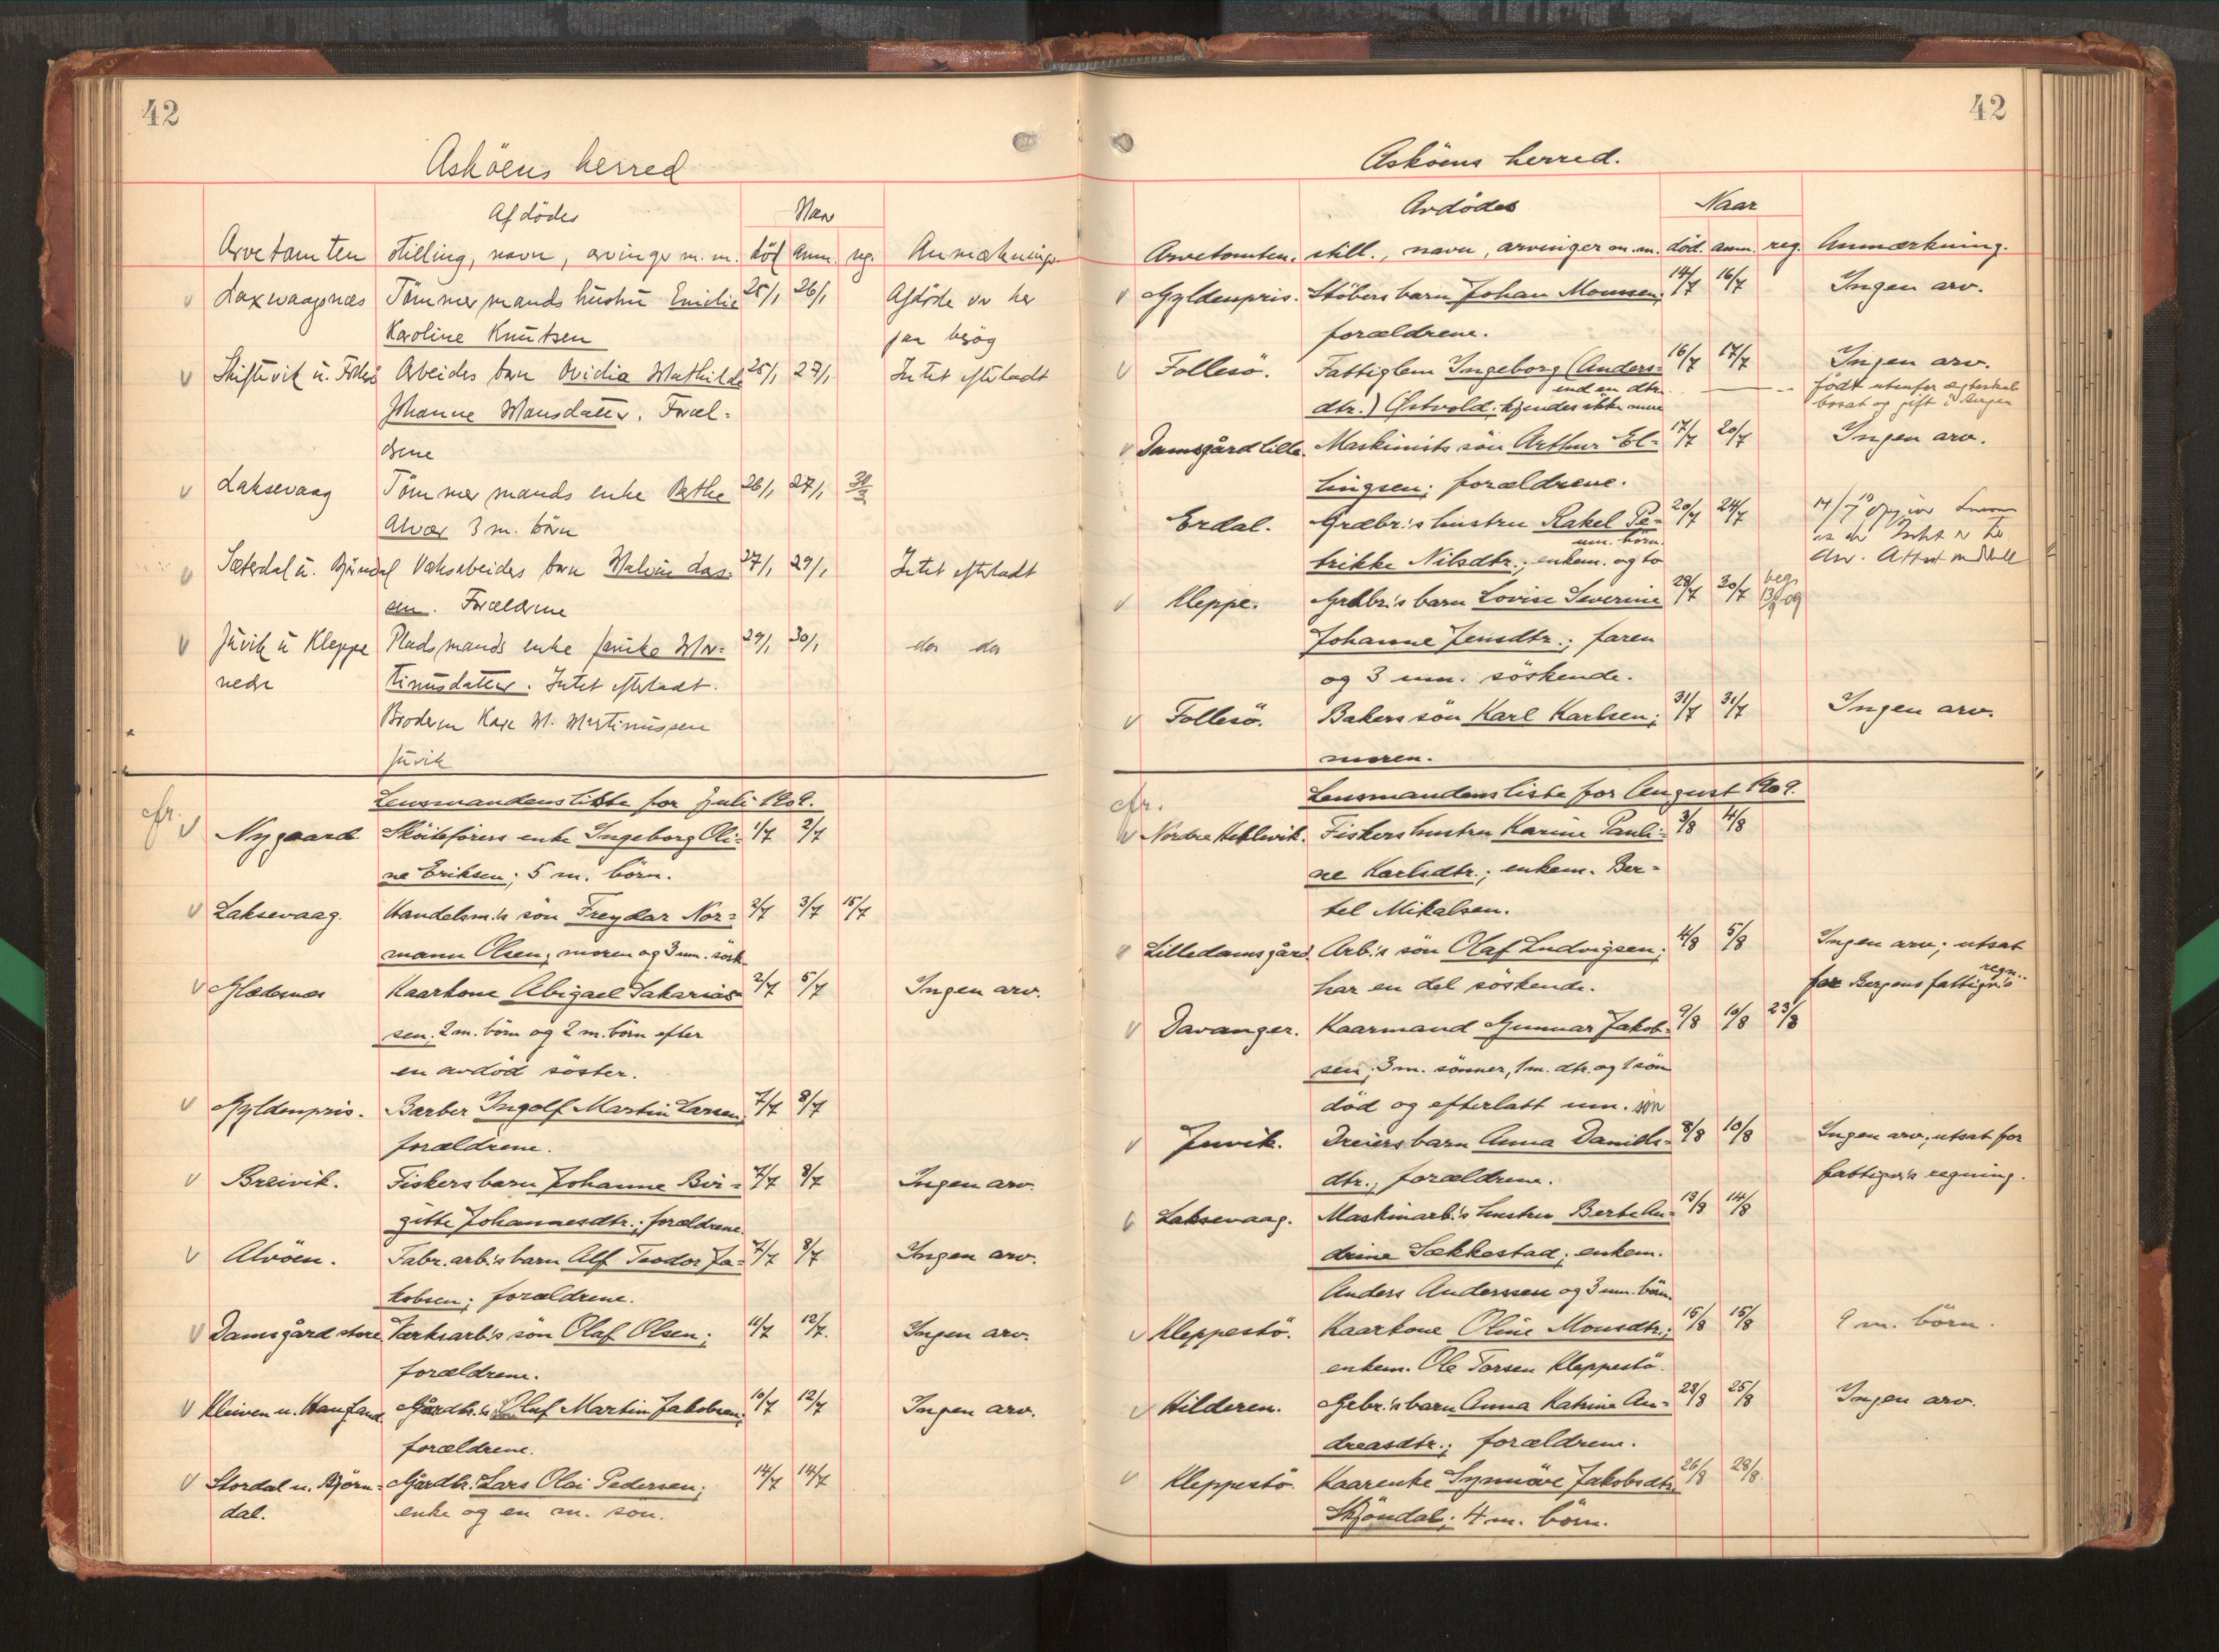 42
Asköens herred
Afdödes
Naar
Arvetomten stilling, navn, arvinger m. m. död anm. reg. Anmerkninger
v Laxevaagsnæs Tömmermands hustru Emilie 25/1 26/1 Afdöde var her
Karoline Knutsen paa besög
v Skiftevik u. Follesö Arbeiders barn Ovidia Mathilde 25/1 27/1 Intet efterladt
Johanne Monsdatter. Foræl-
drene
v Laksevaag Tömmermands enke Berthe 26/1 27/1 30/3
Alvær 3 m. börn
v Sæterdal u. Björndal Værksarbeiders barn Malvin Las- 27/1 29/1 Intet efterladt
sen. Forældrene
v Juvik u Kleppe Pladsmands enke Janike Mar- 29/1 30/1 do do
nedre tinusdatter. Intet efterladt.
Broderen Karl M. Martinussen
Juvik
Lensmandens liste for Juli 1909.
cfr. v Nygaard Sköiteförers enke Ingeborg Oli- 1/7 2/7
ne Eriksen; 5 m. börn.
v Laksevaag. Handelsm.'s sön Freydar Nor- 2/7 3/7 15/7
mann Olsen; moren og 3 um. sösk.
v Glædesnes Kaarkone Abigael Sakarias- 2/7 5/7 Ingen arv.
sen. 2 m. börn og 2 m. börn efter
en avdöd söster.
v Gyldenpris. Barber Ingolf Martin Larsen; 7/7 8/7
forældrene.
v Breivik. Fiskers barn Johanne Bir- 7/7 8/7 Ingen arv.
gitte Johannesdtr.; forældrene.
v Alvöen. Fabr.arb.'s barn Alf Teodor Ja- 7/7 8/7 Ingen arv.
kobsen; forældrene.
v Damsgård store Værksarb.'s sön Olaf Olsen; 11/7 12/7. Ingen arv.
forældrene.
v Kleiven u. Haugland Gårdbr.'s sön Oluf Martin Jakobsen; 10/7 12/7 Ingen arv.
forældrene.
v Stordal u. Björn- Gårdbr. Lars Olai Pedersen; 14/7 14/7
dal. enke og en m. sön.
42
Asköens herred.
Avdödes Naar
Arvetomten. still., navn, arvinger m. m. död. anm. reg. Anmærkning.
v Gyldenpris. Stöbers barn Johan Monsen; 14/7 16/7 Ingen arv.
forældrene.
v Follesö. Fattiglem Ingeborg (Anders- 16/7 17/7 Ingen arv.
end en dtr. födt utenfor ægteskab
dtr.) Östvold; kjendes ikke mere bosat og gift i Bergen
v Damsgård lille. Maskinists sön Arthur El- 17/7 20/7 Ingen arv.
lingsen; forældrene.
Erdal. Grdbr.'s hustru Rakel Pe- 20/7 24/7
um. börn.
trikke Nilsdtr.; enkem. og to
v Kleppe. Grdbr.'s barn Lovise Severine 28/7 30/7 beg. 13/9 09
Johanne Jensdtr.; faren
og 3 um. söskende.
v Follesö. Bakers sön Karl Karlsen; 31/7 31/7 Ingen arv.
moren.
Lensmandens liste for August 1909.
cfr.
v Nordre Hetlevik. Fiskers hustru Karine Pauli- 3/8 4/8
ne Karlsdtr.; enkem. Ber-
tel Mikalsen.
v Lilledamsgård. Arb.'s sön Olaf Ludvigsen; 4/8 5/8 Ingen arv; utsat
har en del söskende. for Bergens fattigv.'s regn.
v Davanger. Kaarmand Gunnar Jakob- 9/8 10/8 23/8
sen; 3 m. sönner, 1 m. dtr. og 1 sön
död og efterlatt um. sön
v Juvik. Dreiers barn Anna Daniels- 8/8 10/8 Ingen arv; utsat for
dtr.; forældrene. fattigv.'s regning.
v Laksevaag. Maskinarb.'s hustru Berte An- 13/8 14/8
drine Sækkestad; enkem.
Anders Anderssen og 3 um. börn.
v Kleppestö. Kaarkone Oline Monsdtr.; 15/8 15/8 9 m. börn.
enkem. Ole Torsen Kleppestö.
v Hilderen. Grbr.'s barn Anna Katrine An- 23/8 25/8 Ingen arv.
dreasdtr.; forældrene.
v Kleppestö. Kaarenke Synnöve Jakobsdtr. 26/8 28/8.
Skjöndal; 4 m. börn.